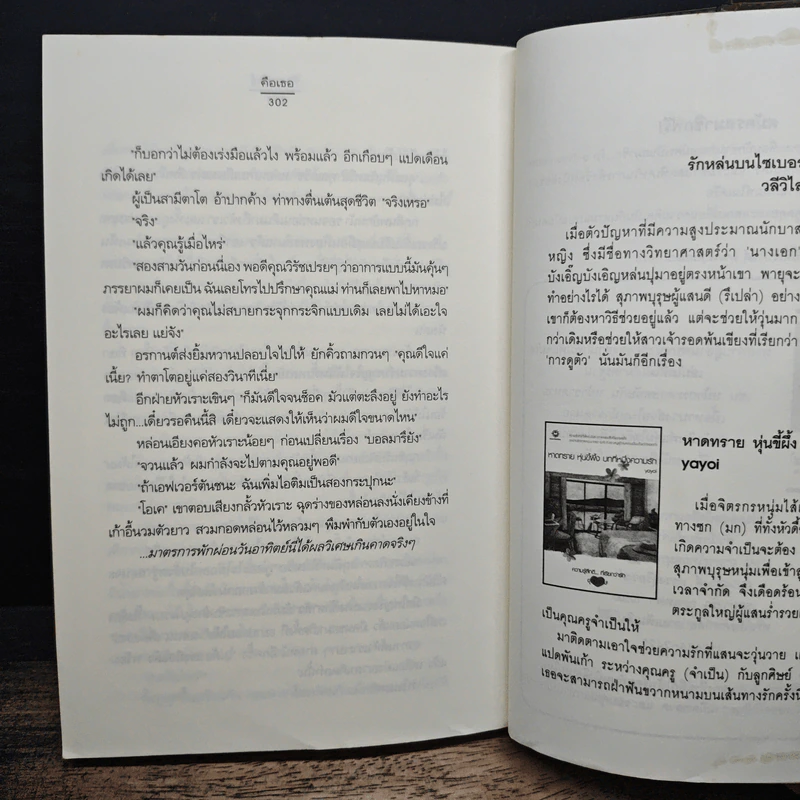 คือเธอ
302
"ก็บอกว่าไม่ต้องเร่งมือแล้วไง พร้อมแล้ว อีกเกือบๆ แปดเดือน
เกิดได้เลย"
ผู้เป็นสามีตาโต อ้าปากค้าง ท่าทางตื่นเต้นสุดชีวิต "จริงเหรอ"
"จริง"
"แล้วคุณรู้เมื่อไหร่"
"สองสามวันก่อนนี่เอง พอดีคุณวิรัชเปรยๆ ว่าอาการแบบนี้มันคุ้นๆ
ภรรยาผมก็เคยเป็น ฉันเลยโทรไปปรึกษาคุณแม่ ท่านก็เลยพาไปหาหมอ"
"ผมก็คิดว่าคุณไม่สบายกระจุกกระจิกแบบเดิม เลยไม่ได้เอะใจ
อะไรเลย แย่จัง"
อรกานต์ส่งยิ้มหวานปลอบใจไปให้ ยักคิ้วถามกวนๆ "คุณดีใจแค่
เนี้ย? ทำตาโตอยู่แค่สองวินาทีเนี่ย"
อีกฝ่ายหัวเราะเขินๆ "ก็มันดีใจจนช็อค มัวแต่ตะลึงอยู่ ยังทำอะไร
ไม่ถูก...เดี๋ยวรอคืนนี้สิ เดี๋ยวจะแสดงให้เห็นว่าผมดีใจขนาดไหน"
หล่อนเอียงคอหัวเราะน้อยๆ ก่อนเปลี่ยนเรื่อง "บอลมารึยัง"
"จวนแล้ว ผมกำลังจะไปตามคุณอยู่พอดี"
"ถ้าเอฟเวอร์ตันชนะ ฉันเพิ่มไอติมเป็นสองกระปุกนะ"
"โอเค" เขาตอบเสียงกลั้วหัวเราะ ฉุดร่างของหล่อนลงนั่งเคียงข้างที่
เก้าอี้นวมตัวยาว สวมกอดหล่อนไว้หลวมๆ พึมพำกับตัวเองอยู่ในใจ
...มาตรการพักผ่อนวันอาทิตย์นี่ได้ผลวิเศษเกินคาดจริงๆ
รักหล่นบนไซเบอร์
วลีวิไล
เมื่อตัวปัญหาที่มีความสูงประมาณนักบาส
หญิง ซึ่งมีชื่อทางวิทยาศาสตร์ว่า 'นางเอก'
บังเอิ๊ญบังเอิญหล่นปุมาอยู่ตรงหน้าเขา พายุจะ
ทำอย่างไรได้ สุภาพบุรุษผู้แสนดี (รึเปล่า) อย่าง
เขาก็ต้องหาวิธีช่วยอยู่แล้ว แต่จะช่วยให้วุ่นมาก
กว่าเดิมหรือช่วยให้สาวเจ้ารอดพ้นเขียงที่เรียกว่า
'การดูตัว' นั่นมันก็อีกเรื่อง
หาดทราย หุ่นขี้ผึ้ง บทที่หนึ่งความรัก
yayoi
ความรู้สึกดี... ที่เรียกว่ารัก
หาดทราย หุ่นขี้ผึ้ง
yayoi
เมื่อจิตรกรหนุ่มไส้
ทางซก (มก) ที่ทั้งหัวดื้
เกิดความจำเป็นจะต้อง
สุภาพบุรุษหนุ่มเพื่อเข้า
เวลาจำกัด จึงเดือดร้อน
ตระกูลใหญ่ผู้แสนร่ำรวย
เป็นคุณครูจำเป็นให้
มาติดตามเอาใจช่วยความรักที่แสนจะวุ่นวาย
แปดพันเก้า ระหว่างคุณครู (จำเป็น) กับลูกศิษย์
เธอจะสามารถฝ่าฟันขวากหนามบนเส้นทางรักครั้งนี้